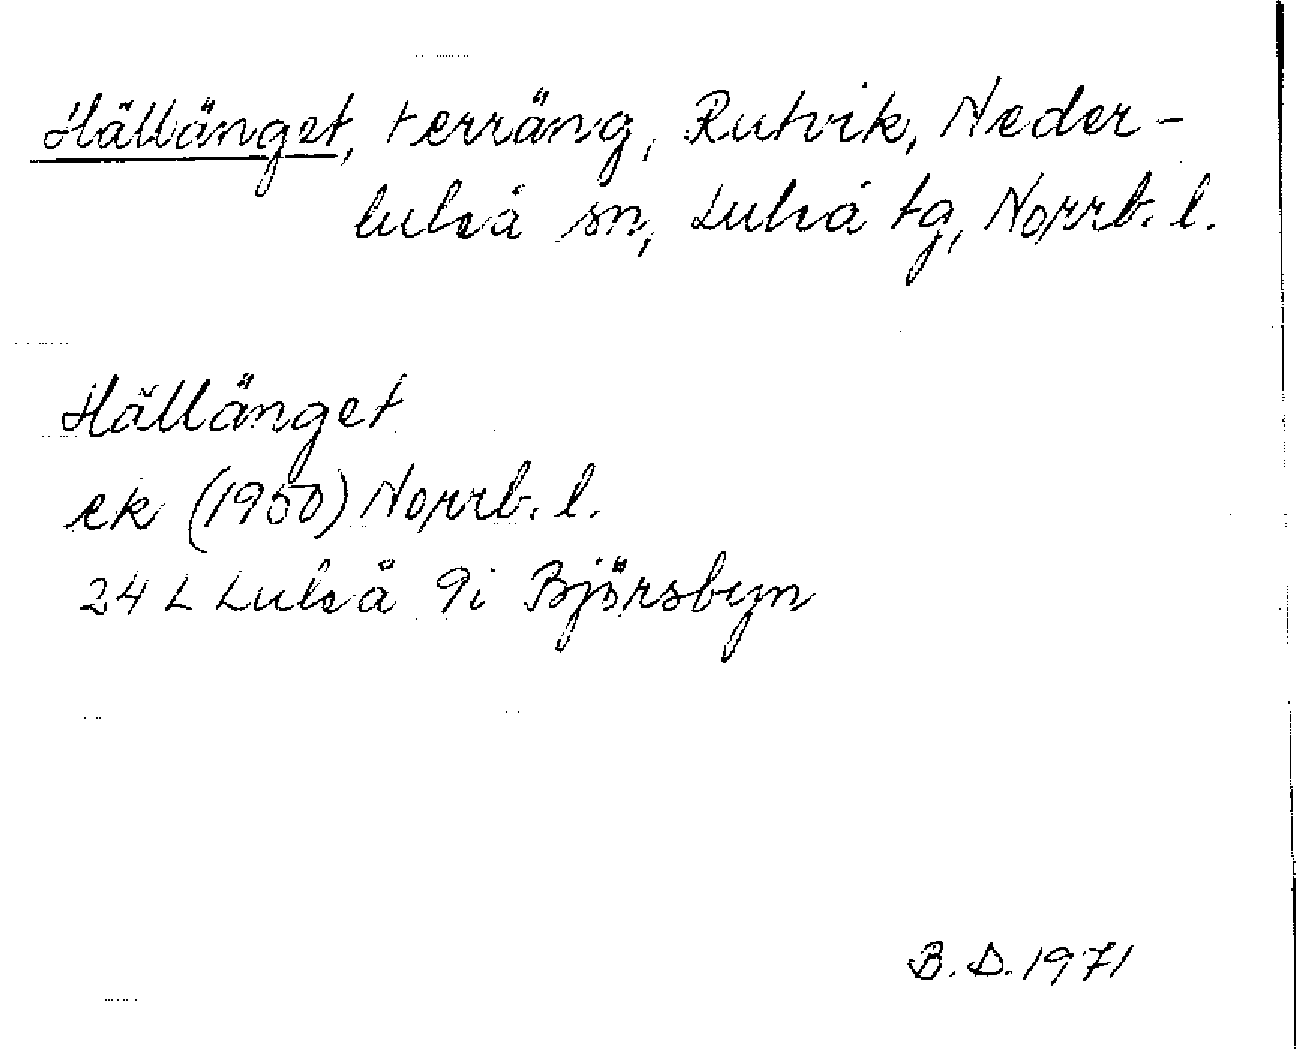 Hällänget, terräng, Rutvik, Neder-
luleå sn, Luleå tg, Norrb. l.
Hällänget
ek (1950) Norrb. l.
24 L Luleå 9i Björsbyn
B. D. 1971